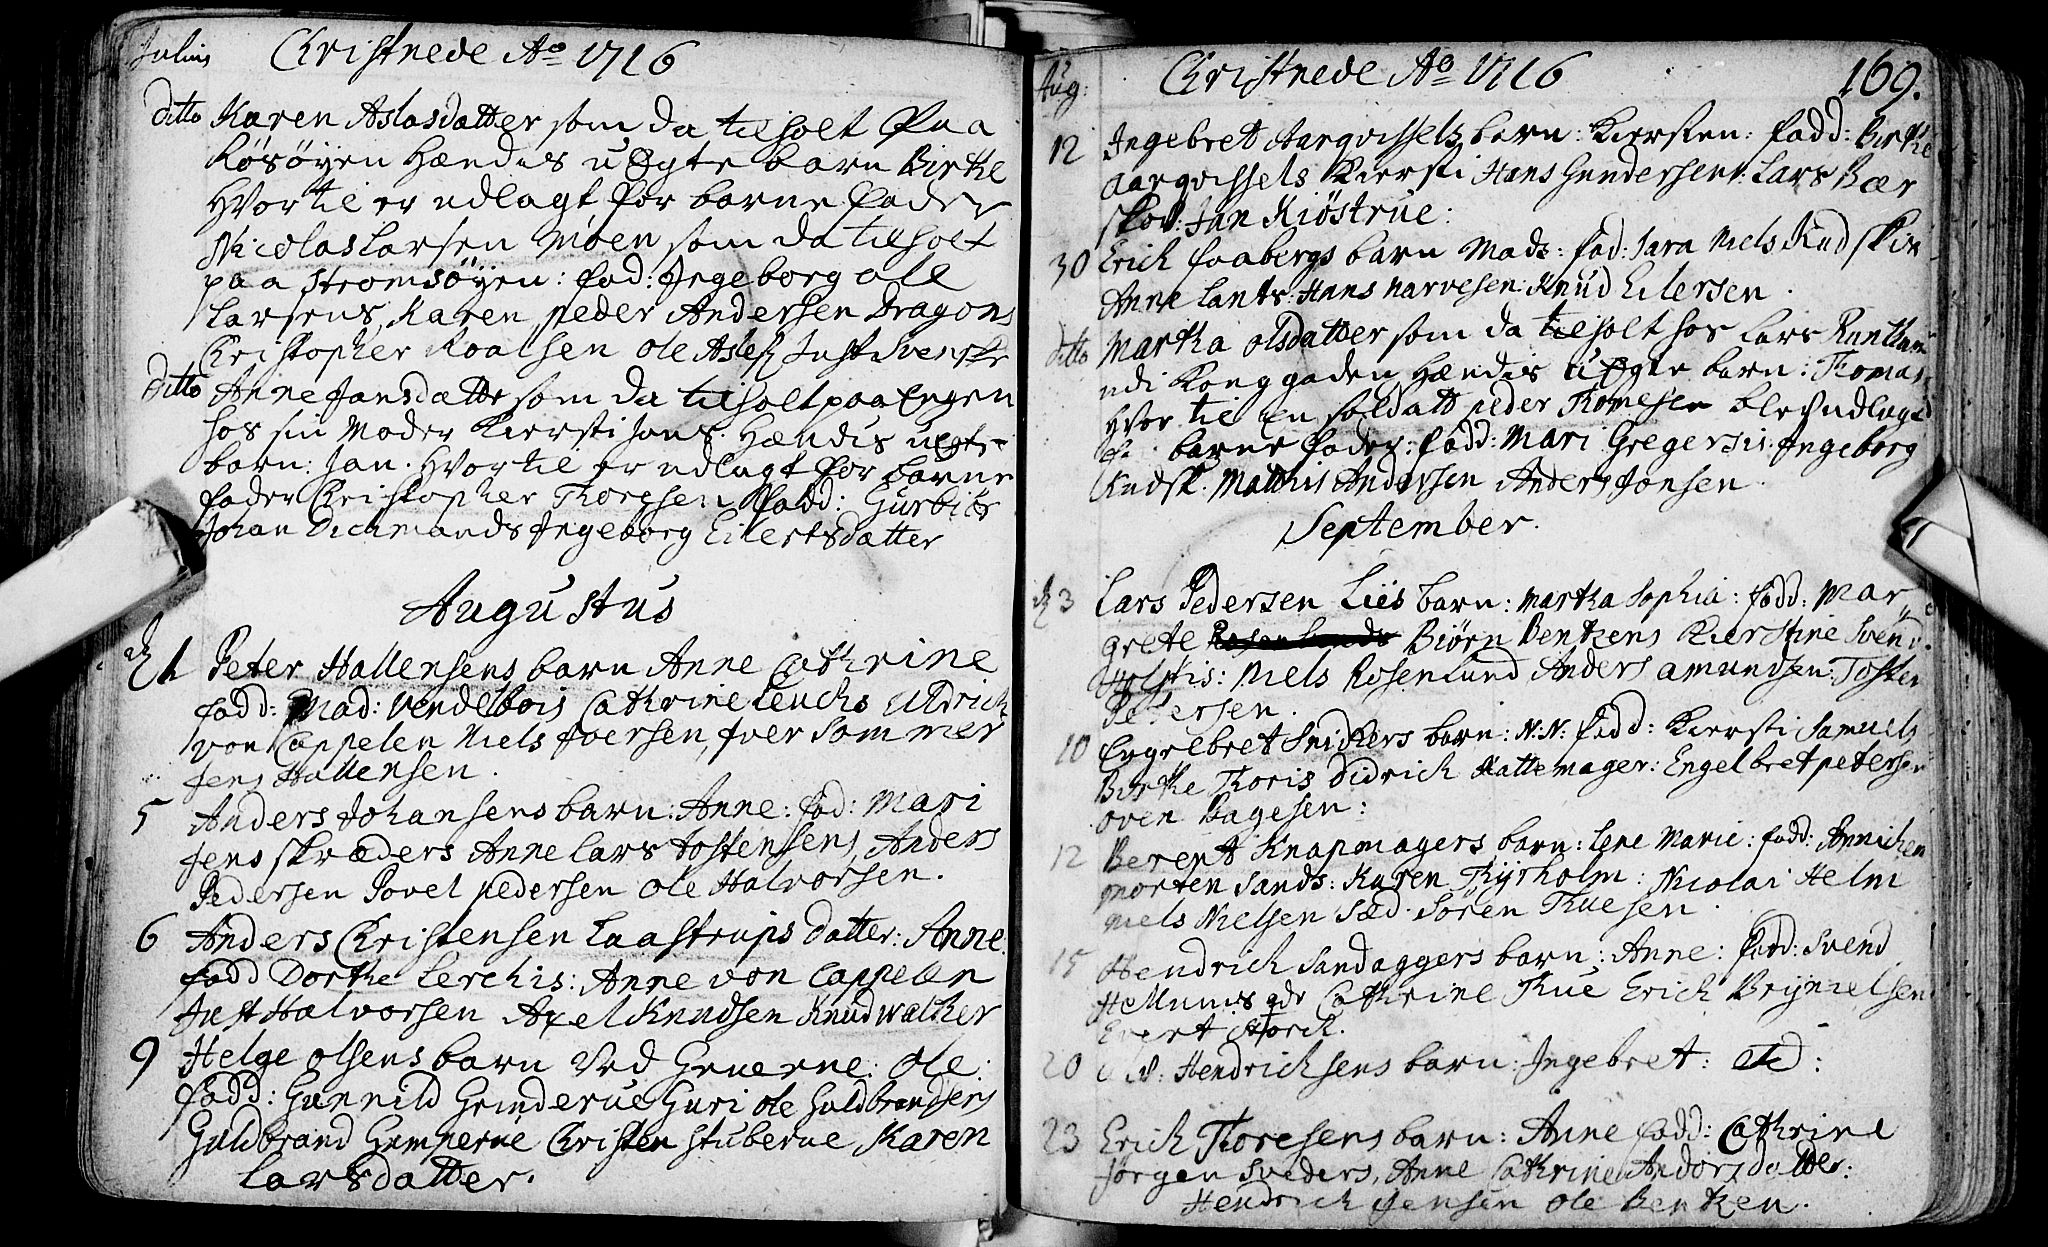 Julius Christnede Ao 1716
ditto Karen Aslasdatter som da tilholt paa
Røsøyen Hændis uÆgte barn Birthe
Hvortil er udlagt for barne fader
Nicolas Larsen Moen som da tilholt
paa Strømsøyen: fad: Ingeborg ole
Larsens, Karen peder Andersen Dragons
Christopher Roalsen ole Aslefs Just Svenske
ditto Anne Jansdatter som da tilholt paa Engen
hos sin Moder Kiersti Jans. Hændis uegte
barn: Jan. Hvortil er udlagt for barne
fader Christopher Thoresen fadd: Gurbiør
Johan Dichmands Ingeborg Eilertsdatter
Augustus
1 Peter Hallensens barn Anne Cathrine
fadd: Mad: Vendelbois Cathrine Leuchs Uldrich
von Cappelen Niels Iversen, Iver Sommer
Jens Hallensen.
5 Anders Johansens barn: Anne: fad: Mari
Jens skræders Anne Lars Tostensens, Anders
Pedersen Povel pedersen ole Halvorsen.
6 Anders Christensen Laastrups datter: Anne
fadd Dorthe Lerchis: Anne von Cappelen
Just Halvorsen Axel Knudsen Knud walcker
9 Helge olsens barn ved Gruerne: ole:
fadd: Gunnild Grinderue Guri ole Guldbrandsens
Guldbrand Gumnerue Christen Stuberue Karen
Larsdatter.
Aug: Christnede Ao 1716 169.
12 Ingebret Aarqvissels barn: Kiersten: fadd: Birthe
aarqvissels Kiersti Hans Gundersens: Lars Bær
skou: Jan Kiøstrue:
30 Erich faabergs barn Mads: fad: Sara Niels Rudskin
Anne Lants: Hans Narvesen: Knud Eilersen.
ditto Martha olsdatter som da tilholt hos Lars
udi Konggaden Hændis uÆgte barn: Thomas
Hvor til en soldatt peder Thomesen blef udlagd
barne fader: fadd: Mari Gregersis: Ingeborg
Rudsk: Matthis Andersen Anders Jonsen.
September.
3 Lars Pedersen Liis barn: Martha Sophia: fadd: Mar
grete Biørn Bentzens Kierstine Svend
Holstis: Niels Rosenlund Anders amundsen: Tosten
Petersen.
10 Engelbret Snickers barn: N:N: fadd: Kiersti Samuels
Birthe Thoris Didrich Hattemager: Engelbret petersen
oven Bagesen:
12 Berent Knapmagers barn: Lene Marie: fadd: Annichen
morten Sands: Karen Thyrholm: Nicolai Helm
niels Nielsen Sæd. Søren Thuesen.
15 Hendrich Sandaggers barn: Anne: fadd: Svend
Hellumis Cathrine Thue Erich Brynielsen
Evert Storck.
20 Hendrichsens barn: Ingebret:
23 Erich Thoresens barn: Anne fadd: Cathrine
Jørgen Sveders, Anne Cathrine Andorsdatter:
Hendrich Jensen ole Bentzen.